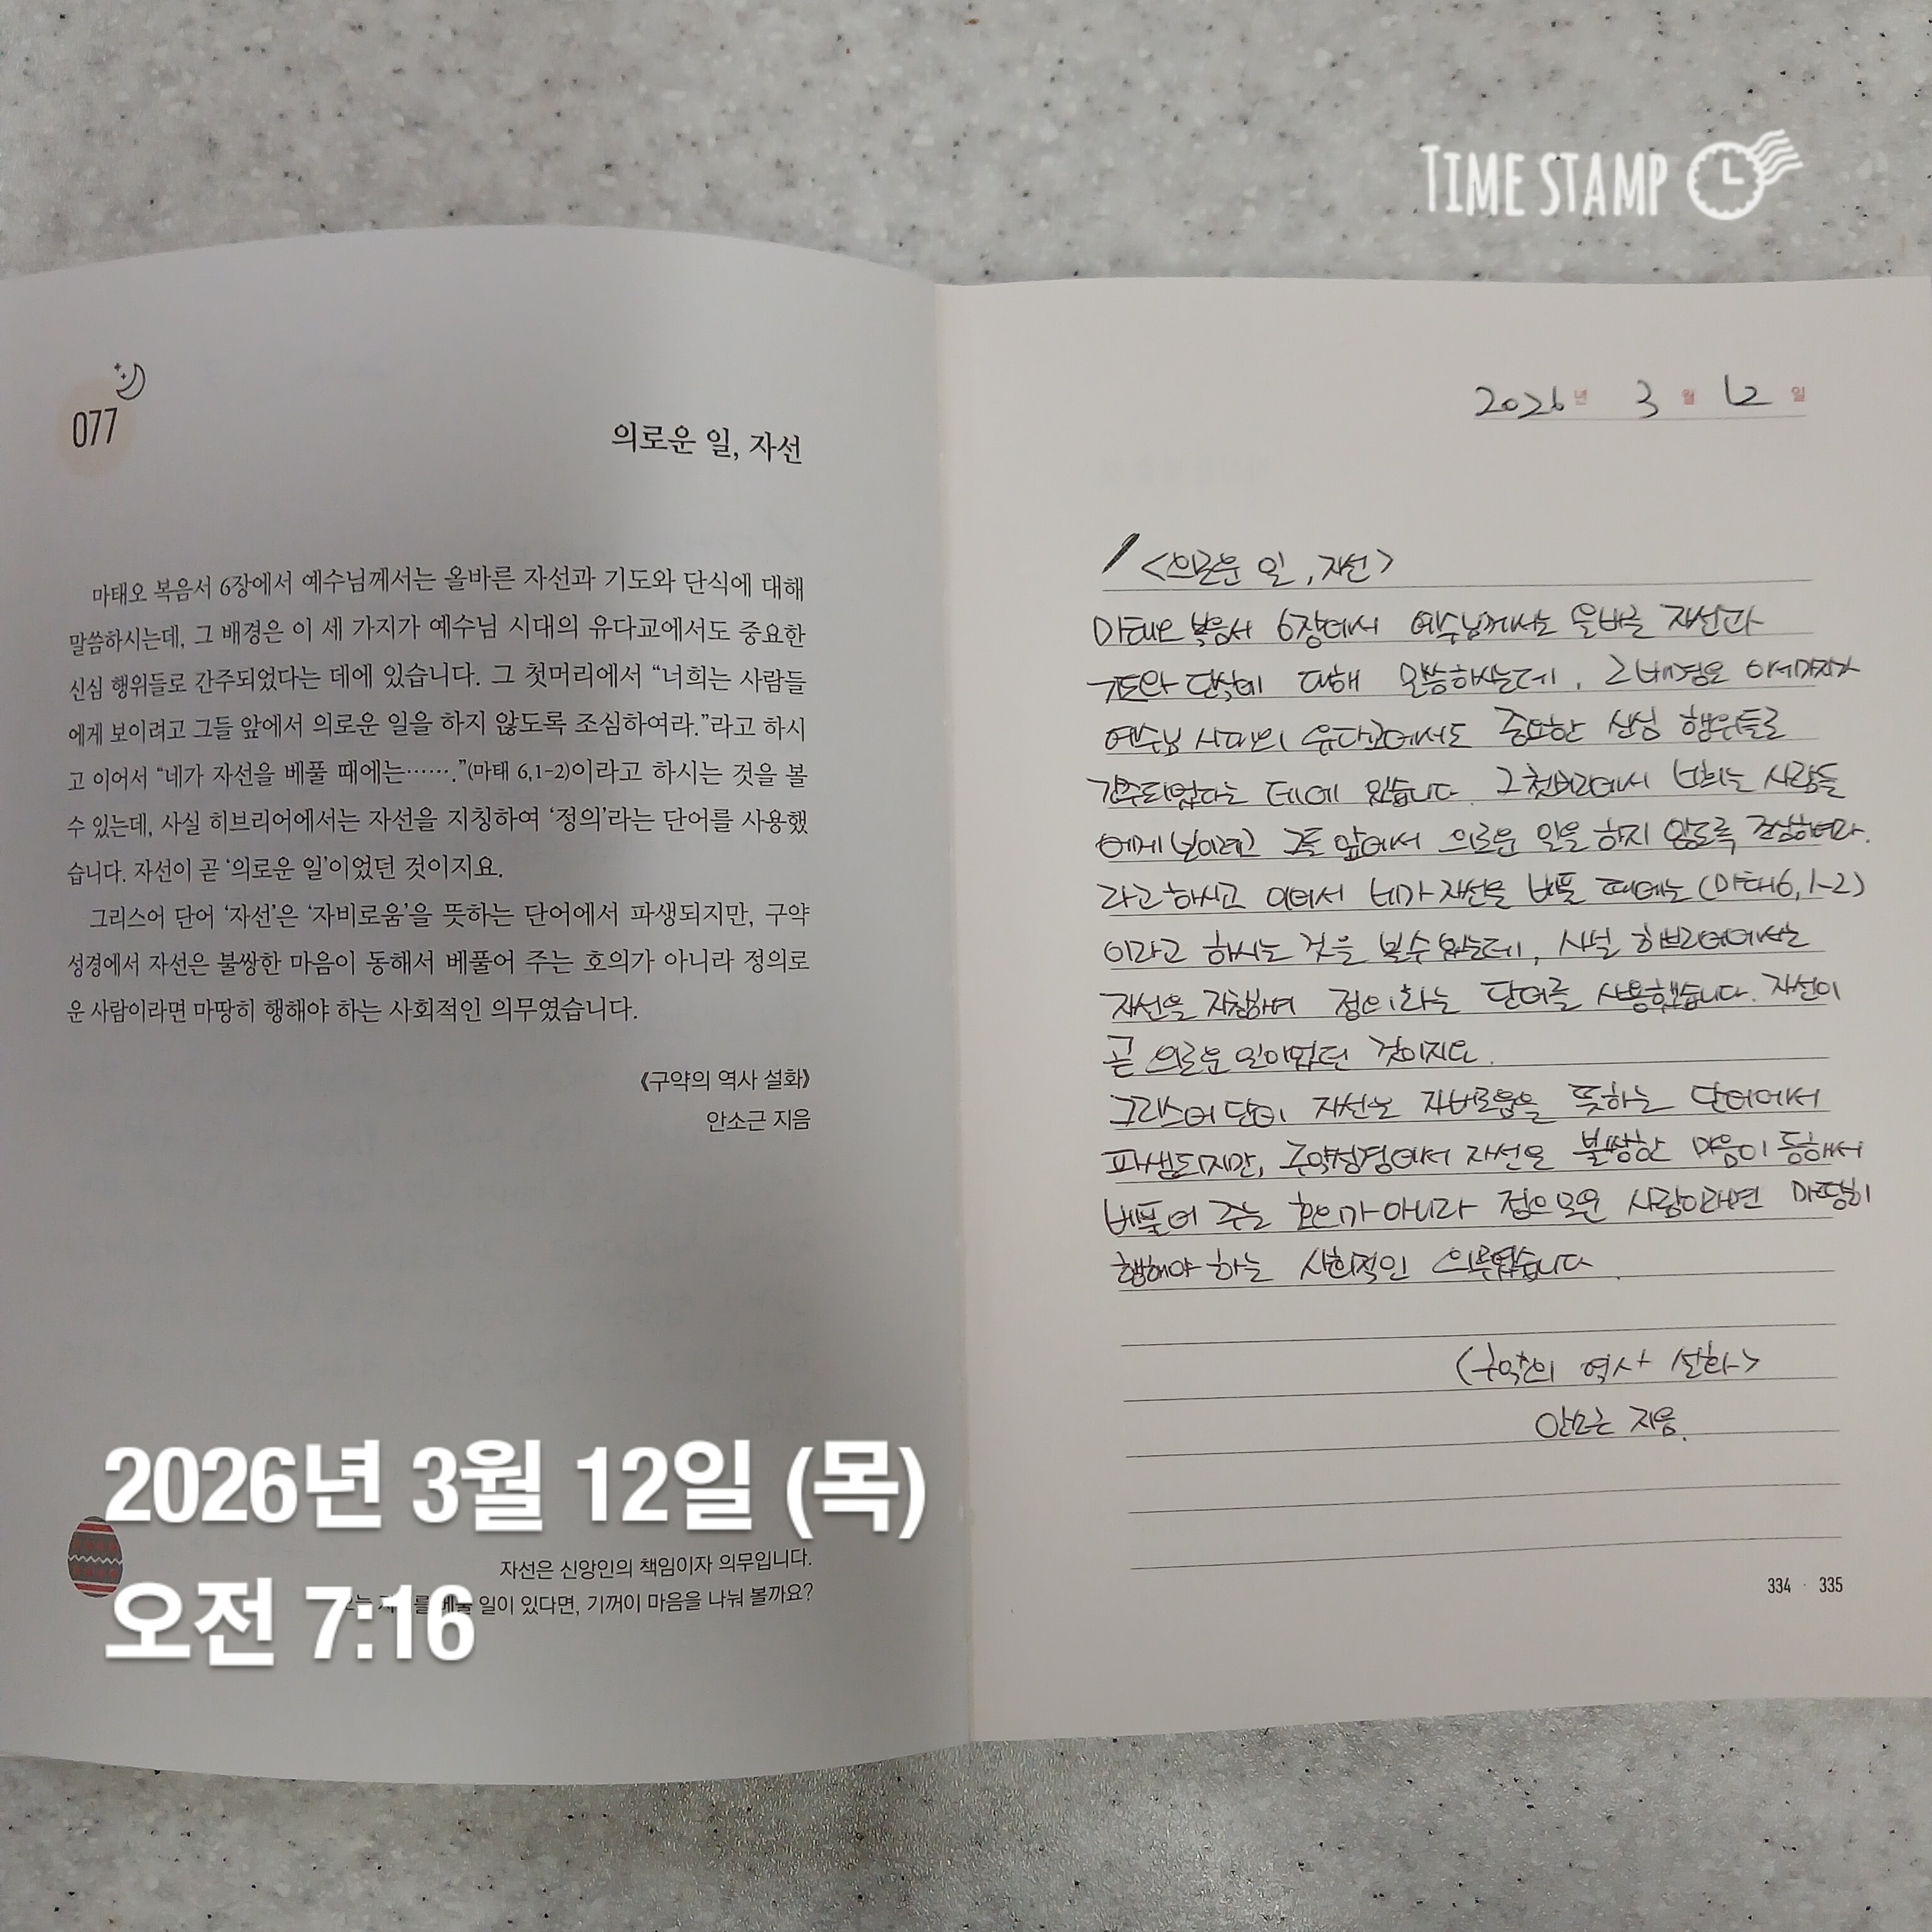 TIME STAMP
077
의로운 일, 자선
마태오 복음서 6장에서 예수님께서는 올바른 자선과 기도와 단식에 대해
말씀하시는데, 그 배경은 이 세 가지가 예수님 시대의 유다교에서도 중요한
신심 행위들로 간주되었다는 데에 있습니다. 그 첫머리에서 “너희는 사람들
에게 보이려고 그들 앞에서 의로운 일을 하지 않도록 조심하여라.”라고 하시
고 이어서 “네가 자선을 베풀 때에는…….”(마태 6,1-2)이라고 하시는 것을 볼
수 있는데, 사실 히브리어에서는 자선을 지칭하여 ‘정의’라는 단어를 사용했
습니다. 자선이 곧 ‘의로운 일’이었던 것이지요.
그리스어 단어 ‘자선’은 ‘자비로움’을 뜻하는 단어에서 파생되지만, 구약
성경에서 자선은 불쌍한 마음이 동해서 베풀어 주는 호의가 아니라 정의로
운 사람이라면 마땅히 행해야 하는 사회적인 의무였습니다.
《구약의 역사 설화》
안소근 지음
자선은 신앙인의 책임이자 의무입니다.
일이 있다면, 기꺼이 마음을 나눠 볼까요?
2026년 3월 12일 (목)
오전 7:16
2026년 3월 12일
<의로운 일, 자선>
마태오 복음서 6장에서 예수님께서는 올바른 자선과
기도와 단식에 대해 말씀하시는데, 그 배경은 이 세가지가
예수님 시대의 유다교에서도 중요한 신심 행위들로
간주되었다는 데에 있습니다. 그 첫머리에서 너희는 사람들
에게 보이려고 그들 앞에서 의로운 일을 하지 않도록 조심하여라.
라고 하시고 이어서 네가 자선을 베풀 때에는 (마태6,1-2)
이라고 하시는 것을 볼수 있는데, 사실 히브리어에서는
자선을 지칭하여 정의라는 단어를 사용했습니다. 자선이
곧 의로운 일이었던 것이지요.
그리스어 단어 자선은 자비로움을 뜻하는 단어에서
파생되지만, 구약성경에서 자선은 불쌍한 마음이 동해서
베풀어 주는 호의가 아니라 정의로운 사람이라면 마땅히
행해야 하는 사회적인 의무였습니다.
<구약의 역사 설화>
안소근 지음.
334 · 335